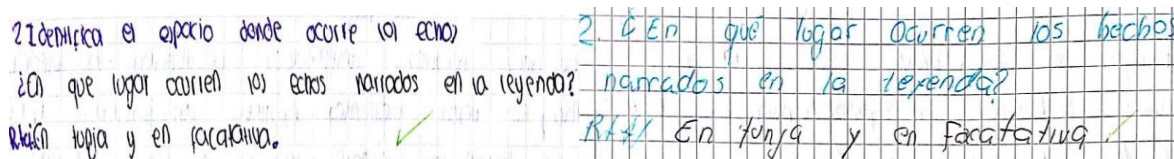 2 Identifica el espacio donde ocurre los echos
¿En que lugar ocurren los echos narrados en la leyenda?
Rta/En tunja y en facatativa.
2. ¿En qué lugar ocurren los hechos
narrados en la leyenda?
Rta// En tunja y en facatativa